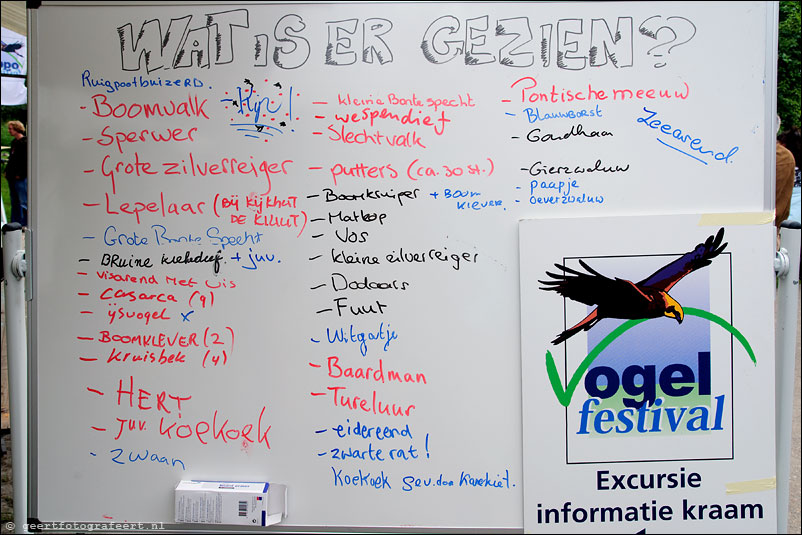 WAT IS ER GEZIEN?
Ruigpootbuizerd.
- BOOMVALK
- Sperwer
- Grote zilverreiger
- Lepelaar (BIJ KIJKHUT
DE KLUUT)
- Grote Bonte Specht
- BRuine kiekedief + juv.
- visarend met vis
- casarca (9)
- ijsvogel x
- BOOMKLEVER (2)
- kruisbek (4)
- HERT
- juv. koekoek
- zwaan
- kleine Bonte specht
- wespendief
- Slechtvalk
- putters (ca. 30 st.)
- Boomkruiper + BOOM
KLEVER.
- Matkop
- Vos
- Kleine zilverreiger
- Dodaars
- Fuut
- Witgatje
- Baardman
- Tureluur
- eidereend
- zwarte rat!
Koekoek gev. door Karekiet.
- Pontische meeuw
- Blauwborst
- Goudhaan
- Gierzwaluw
- paapje
- oeverzwaluw
Zeearend.
Vogel
festival
Excursie
informatie kraam
© geertfotografeert.nl